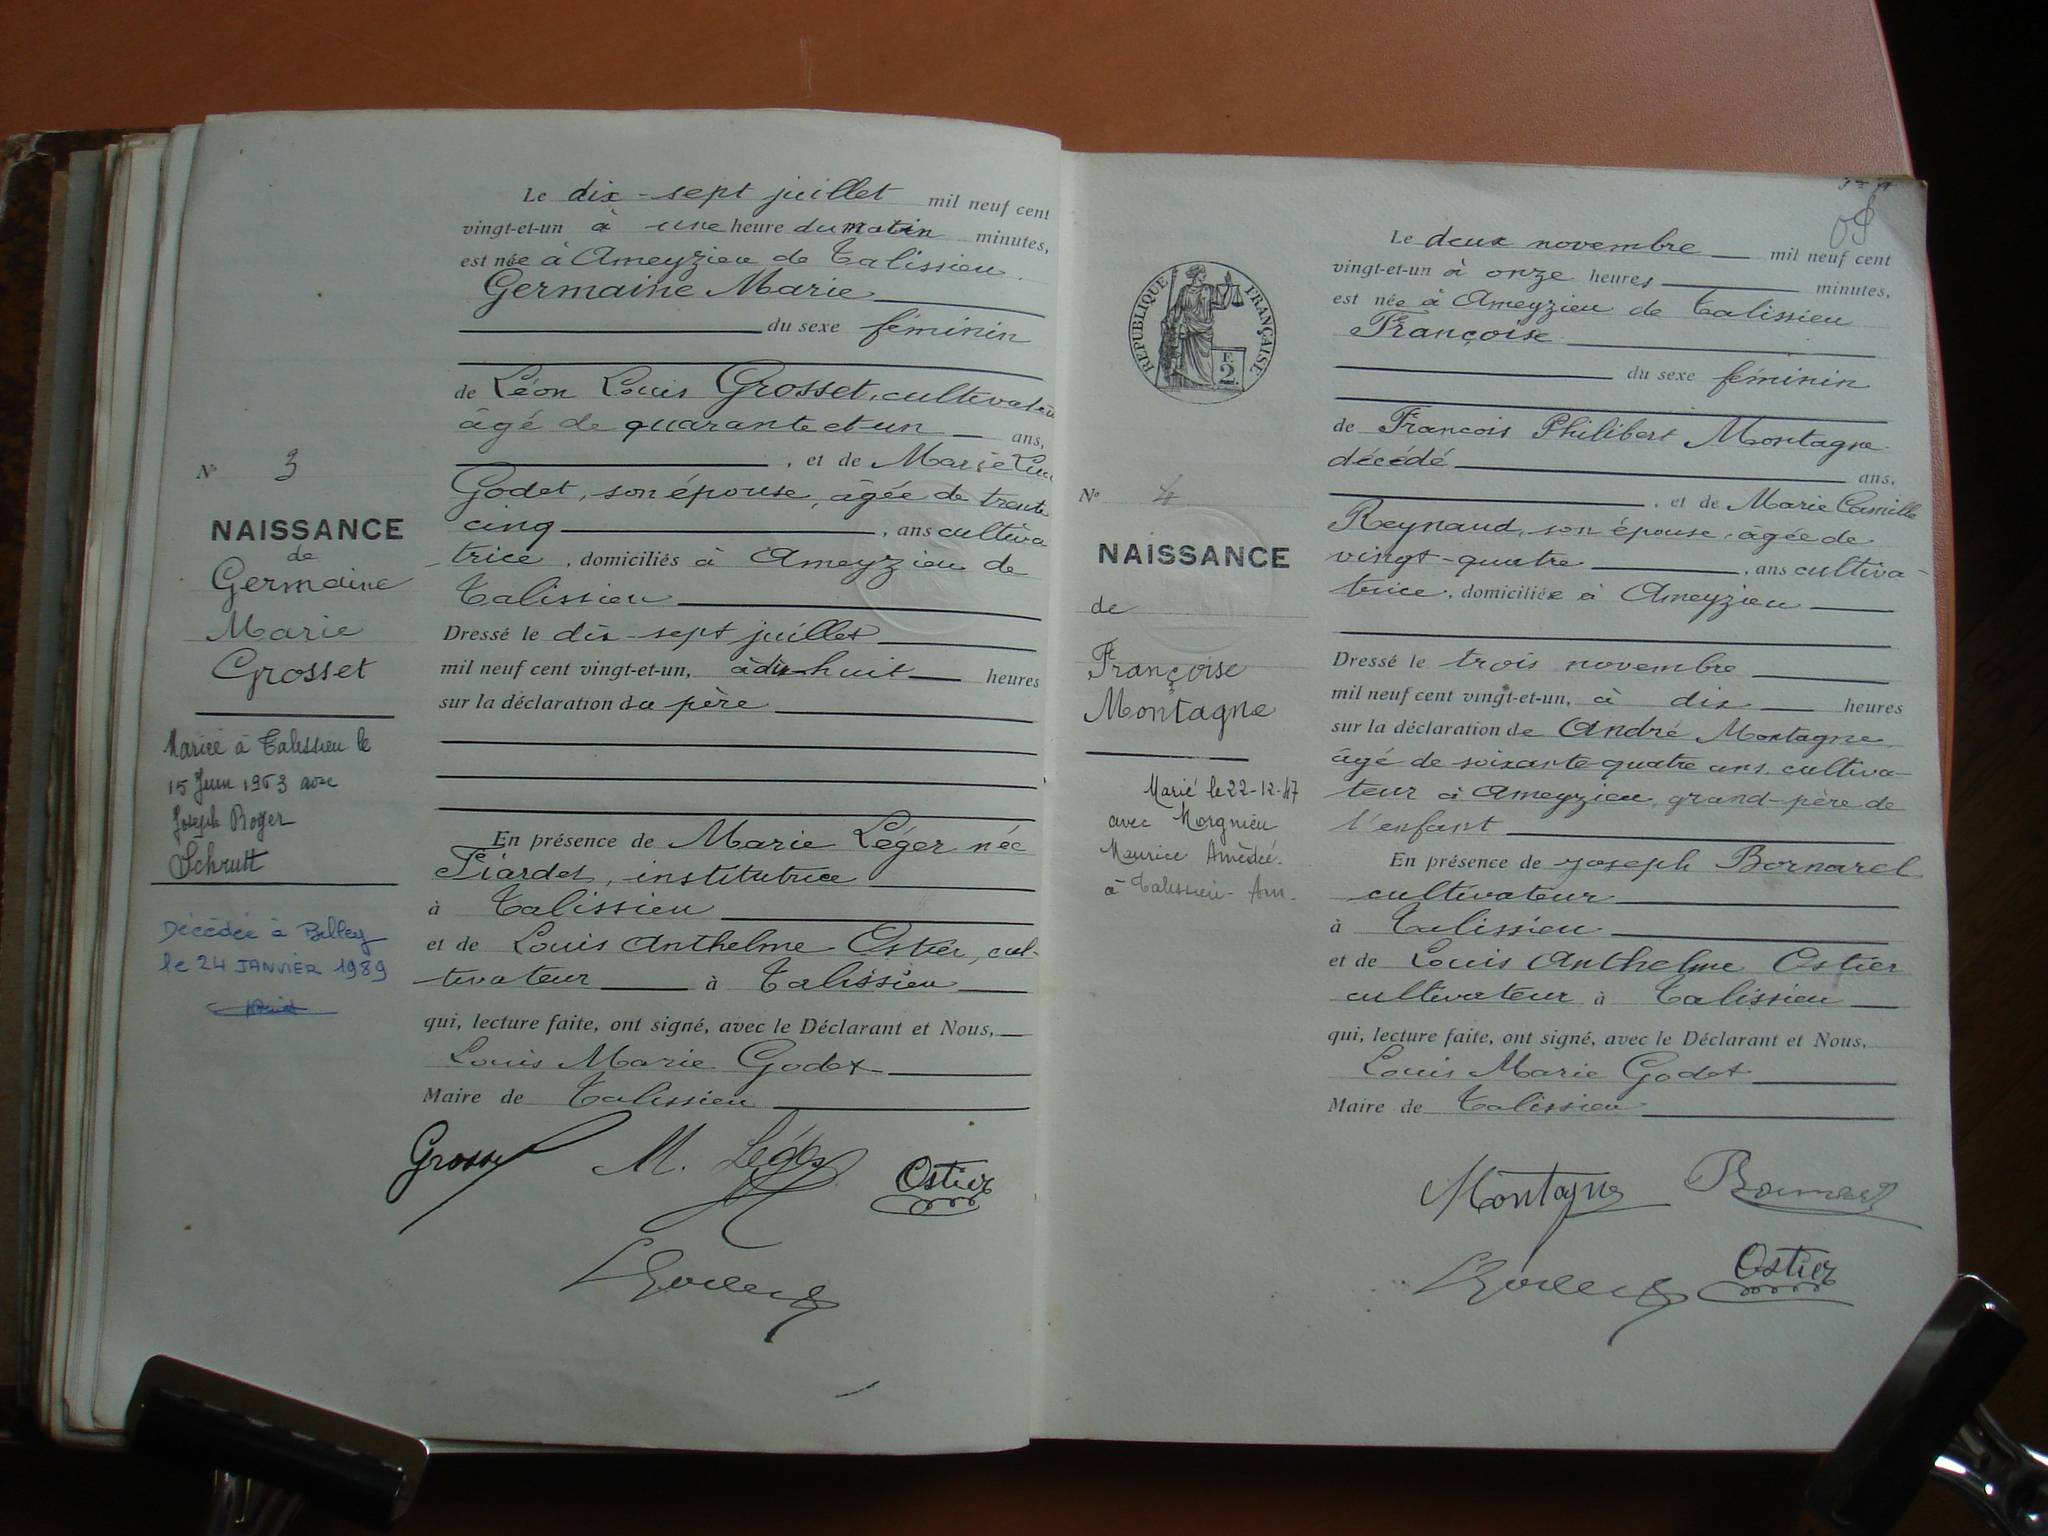 Le dix-sept juillet mil neuf cent
vingt-et-un à une heure du matin minutes,
est née à Ameyzieu de Talissieu
Germaine Marie
du sexe féminin
de Léon Louis Grosset, cultivateur
âgé de quarante et un ans,
, et de Marie
Godet, son épouse, âgée de trente
cinq , ans cultiva
trice, domiciliés à Ameyzieu de
Talissieu
Dressé le dix-sept juillet
mil neuf cent vingt-et-un, à dix-huit heures
sur la déclaration du père
En présence de Marie Léger née
institutrice
à Talissieu
et de Louis Anthelme Ostier, cul-
tivateur à Talissieu
qui, lecture faite, ont signé, avec le Déclarant et Nous,
Louis Marie Godet
Maire de Talissieu
Grosset M. Léger Ostier
N° 3
NAISSANCE
de
Germaine
Marie
Grosset
Mariée à Talissieu le
15 Juin 1963 avec
Joseph Roger
Schrutt
Décédée à Belley
le 24 JANVIER 1989
RÉPUBLIQUE FRANÇAISE
F.
2
N° 4
NAISSANCE
de
Françoise
Montagne
Marié le 22-12-47
avec Morgnieu
Maurice Amédée
à Talissieu- Ain.
Le deux novembre mil neuf cent
vingt-et-un à onze heures minutes,
est née à Ameyzieu de Talissieu
Françoise
du sexe féminin
de François Philibert Montagne
décédé ans,
, et de Marie Camille
Reynaud, son épouse, âgée de
vingt-quatre , ans cultiva-
trice, domiciliée à Ameyzieu
Dressé le trois novembre
mil neuf cent vingt-et-un, à dix heures
sur la déclaration de André Montagne
âgé de soixante-quatre ans, cultiva-
teur à Ameyzieu, grand-père de
l'enfant
En présence de Joseph Bornarel
cultivateur
à Talissieu
et de Louis Anthelme Ostier
cultivateur à Talissieu
qui, lecture faite, ont signé, avec le Déclarant et Nous,
Louis Marie Godet
Maire de Talissieu
Montagne Bornarel
Ostier